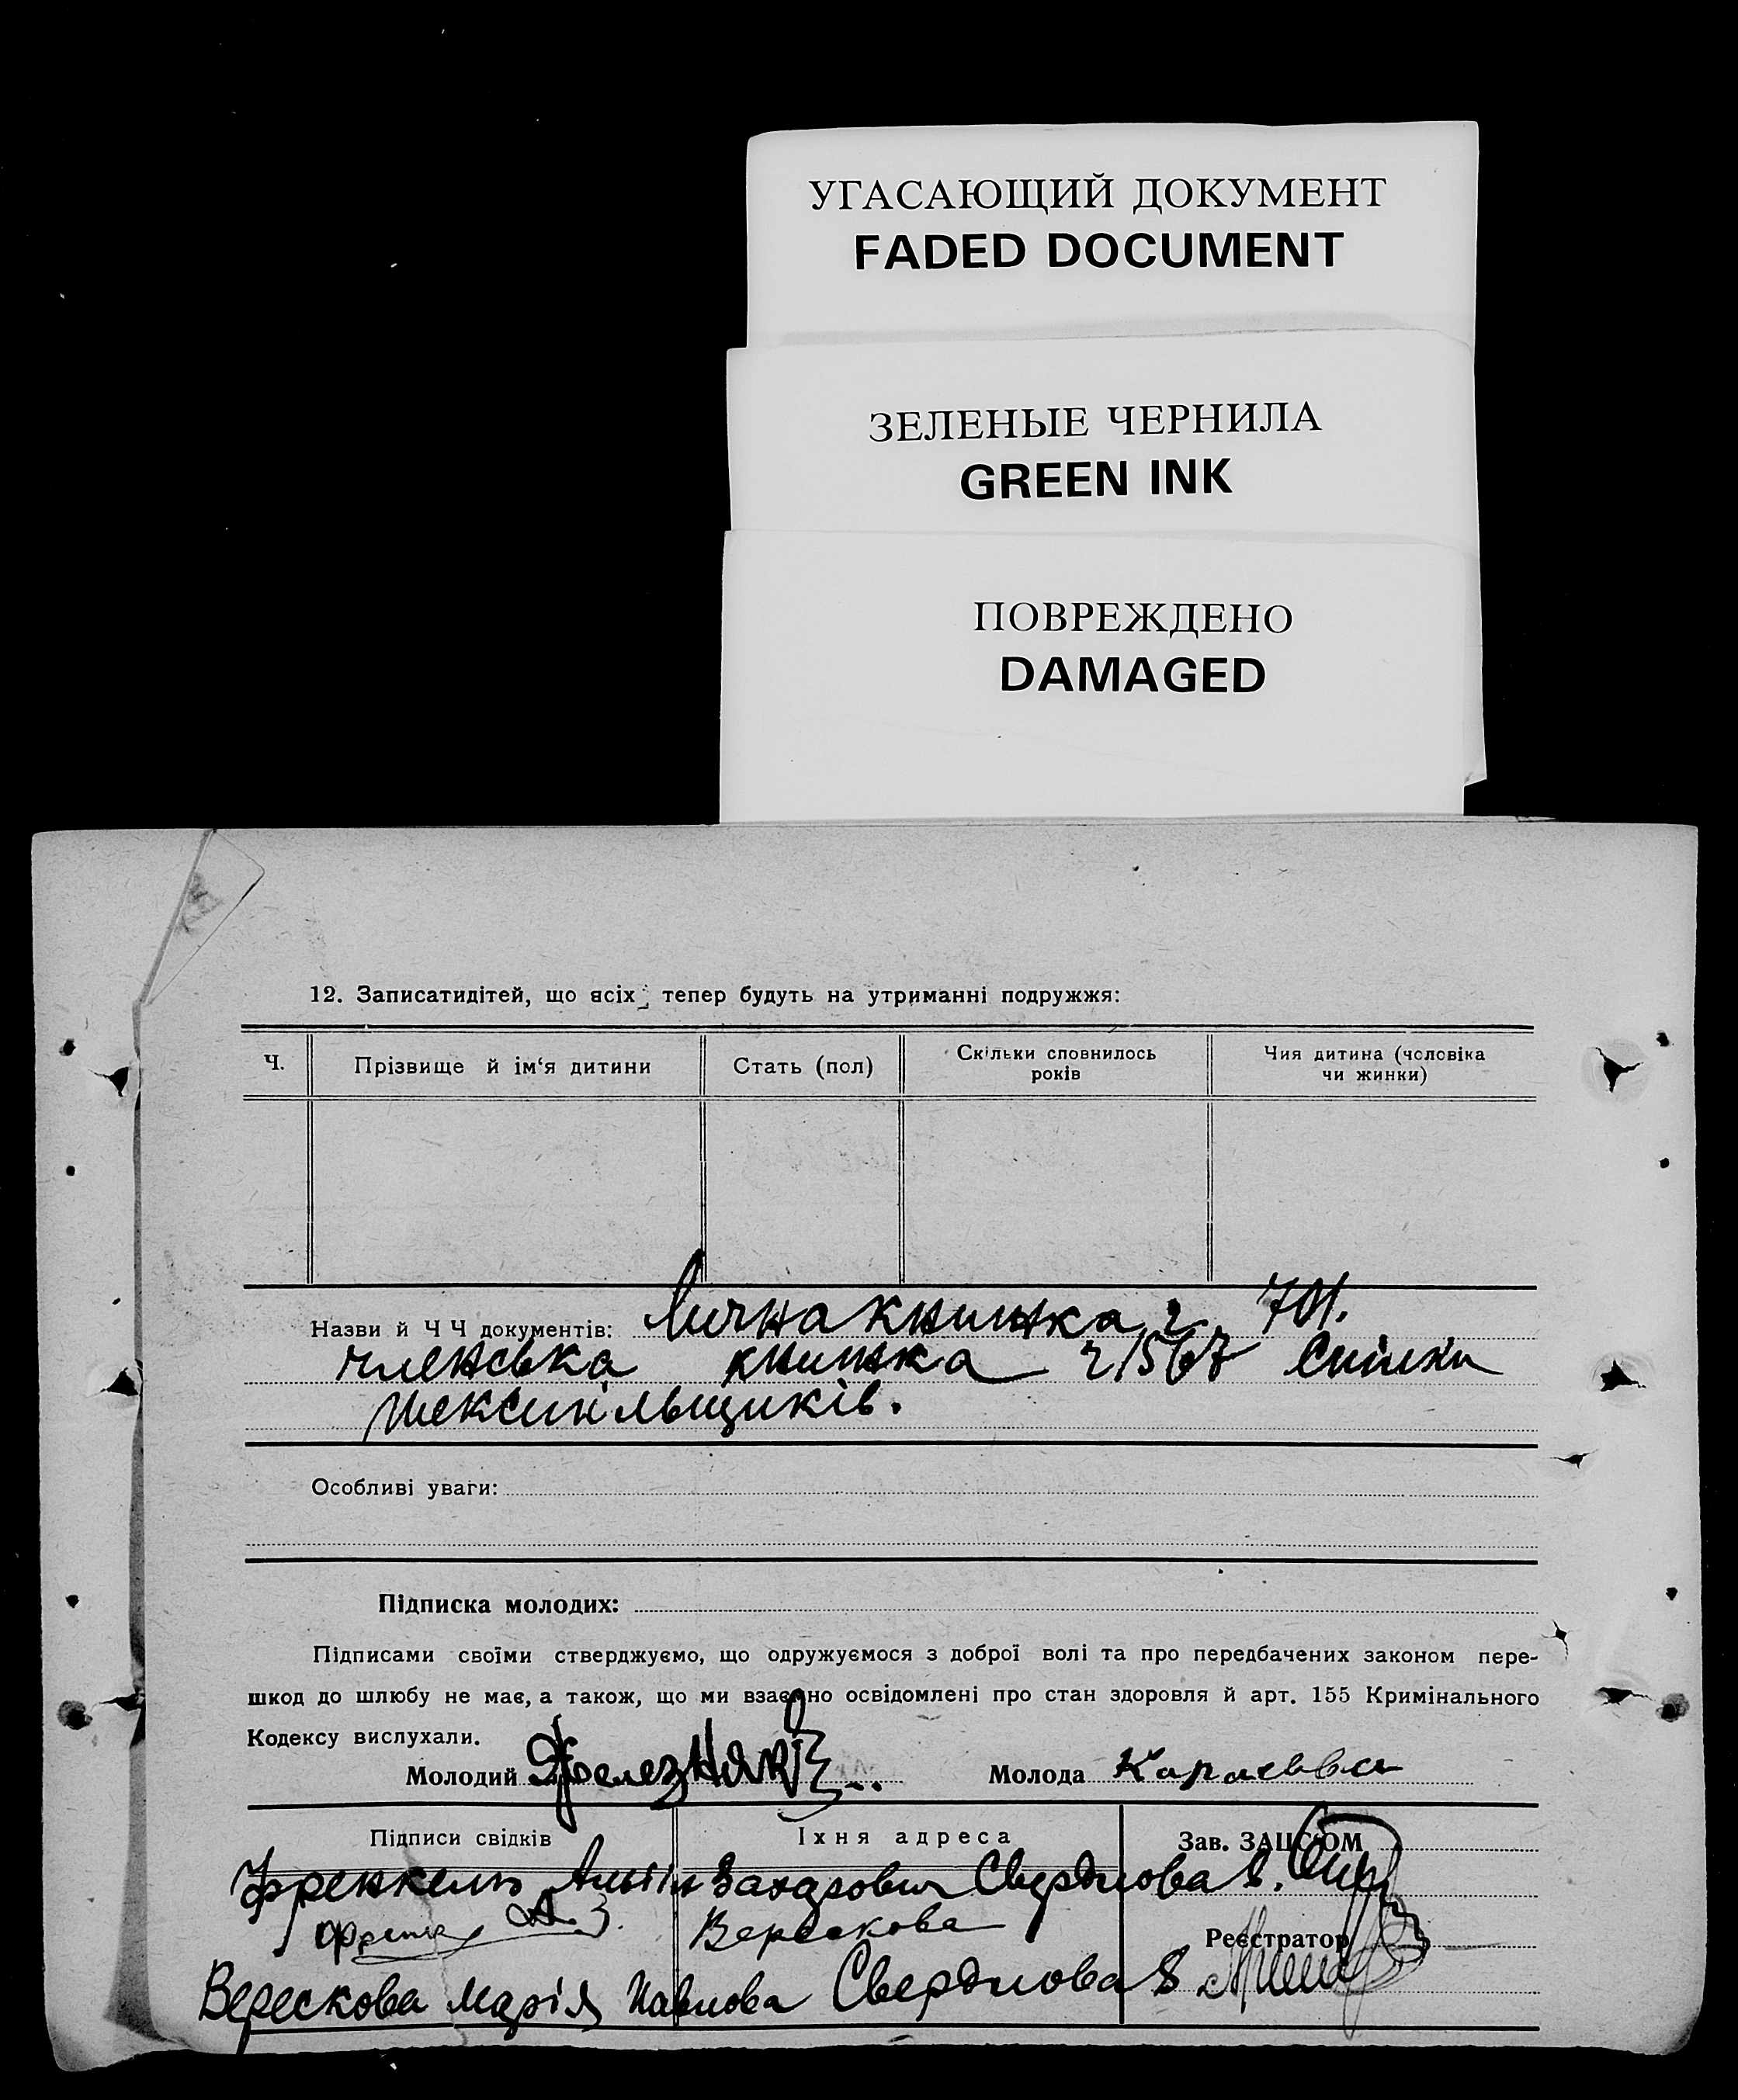 УГАСАЮЩИЙ ДОКУМЕНТ
FADED DOCUMENT
ЗЕЛЕНЫЕ ЧЕРНИЛА
GREEN INK
ПОВРЕЖДЕНО
DAMAGED
12. Записатидітей, що всіх тепер будуть на утриманні подружжя:
Ч. Прізвище й ім‘я дитини Стать (пол) Скільки сповнилось років Чия дитина (чоловіка чи жинки)
Назви й Ч Ч документів: Лична книжка ч 701.
членська книжка ч 1567 Спілки
текстильщиків.
Особливі уваги:
Підписка молодих:
Підписами своїми стверджуємо, що одружуємося з доброї волі та про передбачених законом пере-
шкод до шлюбу не має, а також, що ми взаємно освідомлені про стан здоровля й арт. 155 Кримінального
Кодексу вислухали.
Молодий Железняк Молода
Підписи свідків Їхня адреса Зав. ЗАЦСОМ
Френкель Захарович Свердлова 8.
А. З. Верескова Реєстратор
Верескова Марія Павлова Свердлова 8